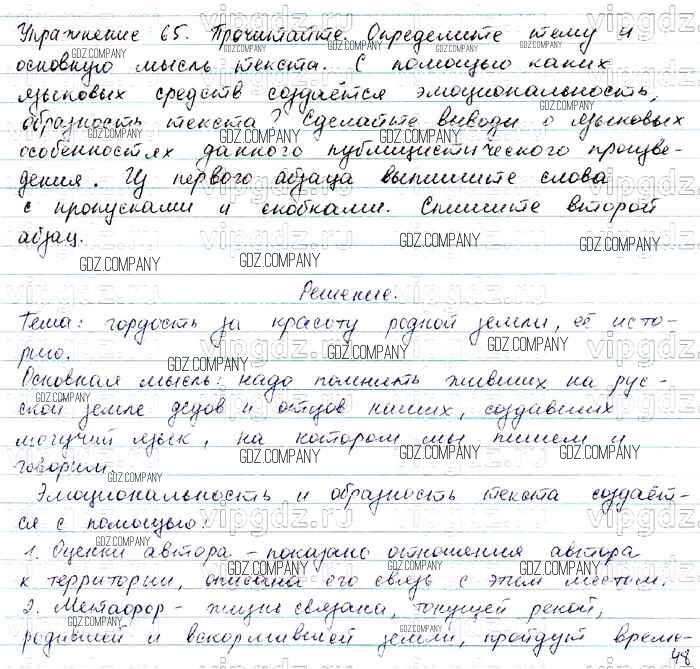 Упражнение 65. Прочитайте. Определите тему и
основную мысль текста. С помощью каких
языковых средств создаётся эмоциональность,
образность текста? Сделайте выводы о языковых
особенностях данного публицистического произве-
дения. Из первого абзаца выпишите слова
с пропусками и скобками. Спишите второй
абзац.
Решение.
Тема: гордость за красоту родной земли, её исто-
рию.
Основная мысль: надо помнить живших на рус-
ской земле дедов и отцов наших, создавших
могучий язык, на котором мы пишем и
говорим.
Эмоциональность и образность текста создаёт-
ся с помощью:
1. Оценки автора – показано отношения автора
к территории, описана его связь с этим местом.
2. Метафор – жизнь связана, текущей рекой,
родившей и вскормившей земли, пройдут време-
48